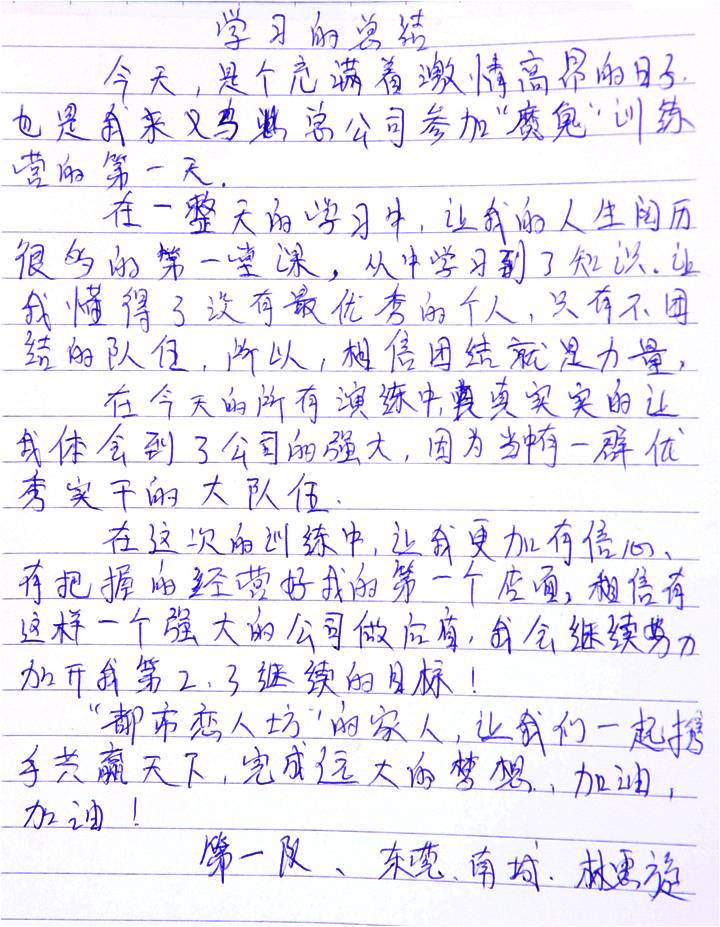 学习的总结
今天,是个充满着激情高昂的日子.
也是我来义乌总公司参加“魔鬼”训练
营的第一天.
在一整天的学习中,让我的人生阅历
很多的第一堂课,从中学习到了知识.让
我懂得了没有最优秀的个人,只有不团
结的队伍,所以,相信团结就是力量,
在今天的所有演练中,真真实实的让
我体会到了公司的强大,因为当中有一群优
秀实干的大队伍.
在这次的训练中,让我更加有信心、
有把握的经营好我的第一个店面,相信有
这样一个强大的公司做后盾,我会继续努力
加开我第2、3继续的目标!
“都市恋人坊”的家人,让我们一起携
手共赢天下,完成远大的梦想,加油,
加油!
第一队、东莞.南城.林